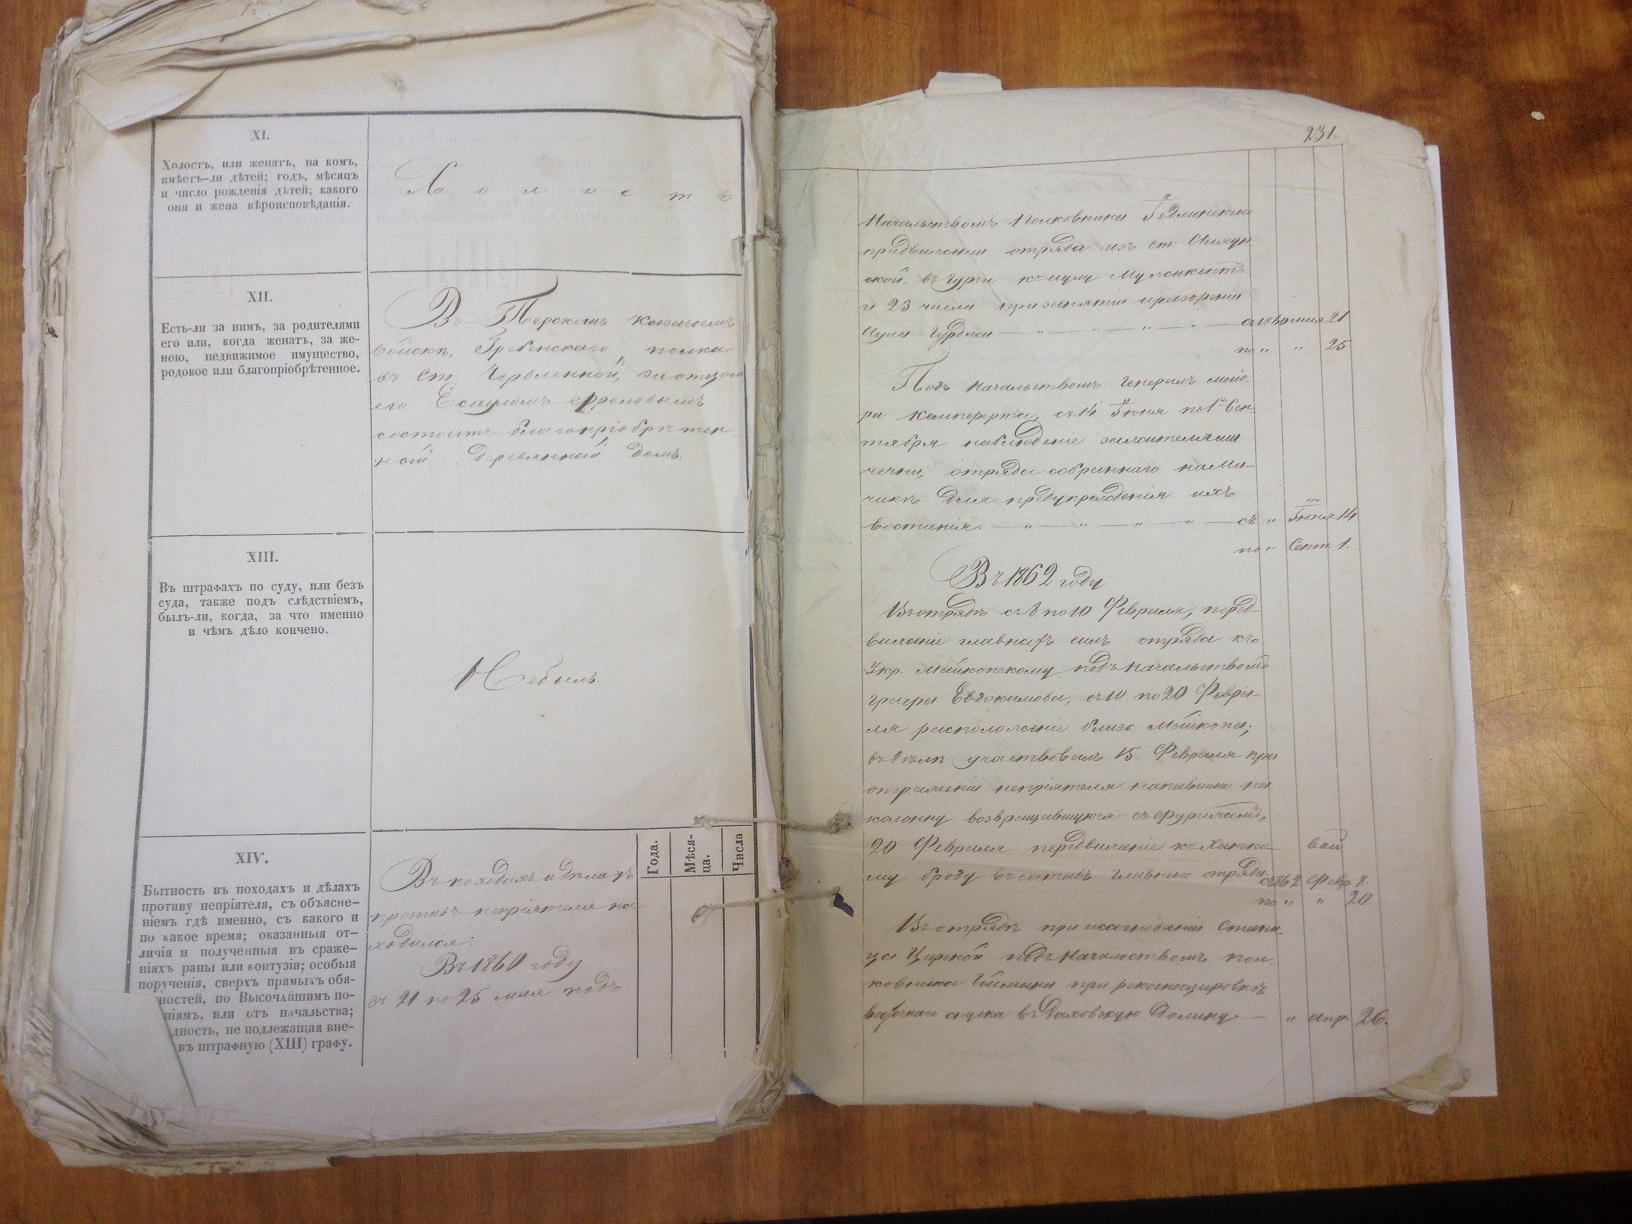 XI.
Холостъ, или женатъ, на комъ,
имѣетъ-ли дѣтей; годъ, мѣсяцъ
и число рожденія дѣтей; какого
они и жена вѣроисповѣданія.
Холостъ
XII.
Есть-ли за нимъ, за родителями
его или, когда женатъ, за же-
ною, недвижимое имущество,
родовое или благопріобрѣтенное.
Въ Терскомъ казачьемъ
войскѣ, Гребенскаго полка
въ ст. Червленной, за отцомъ
его Есауломъ Фроловымъ
состоитъ благопріобрѣтен
ной деревянный домъ.
XIII.
Въ штрафахъ по суду, или безъ
суда, также подъ слѣдствіемъ,
былъ-ли, когда, за что именно
и чѣмъ дѣло кончено.
Небылъ
XIV.
Бытность въ походахъ и дѣлахъ
противу непріятеля, съ объясне-
ніемъ гдѣ именно, съ какого и
по какое время; оказанныя от-
личія и полученныя въ сраже-
ніяхъ раны или контузіи; особыя
порученія, сверхъ прямыхъ обя-
ностей, по Высочайшимъ по-
ніямъ, или отъ начальства;
дность, не подлежащая вне-
въ штрафную (XIII) графу.
Года.
Мѣся-
ца.
Числа
Въ походахъ и дѣлахъ
противъ непріятеля на
ходился:
Въ 1860 году
съ 21 по 25 мая подъ
231
Начальствомъ Полковника
отряда изъ ст.
къ аулу
и 23 числа при занятіи
Аула по " " 25
Подъ начальствомъ Генералъ маіо-
ра Кемпферта, съ 14 Іюня по 1е Сен
тября наблюденіе за жителями
чечни, отряда собраннаго на Ми-
чикѣ для предупрежденія ихъ
съ " Іюня 14
по " Сент. 1.
Въ 1862 году
Въ отрядѣ съ 8 по 10 Февраля, перед-
виженіе главныхъ силъ отряда къ
Укр. Майкопскому подъ начальствомъ
графа Евдокимова, съ 10 по 20 Февра-
ля расположеніе близь Майкопа;
въ дѣлѣ участвовалъ 15 Февраля при
отраженіи непріятеля напавшаго на
колонну возвращавшуюся съ фуражемъ,
20 Февраля передвиженіе къ Ханско-
му броду въ составѣ главнаго отряда съ 1862 Февр. 8.
по " " 20
Въ отрядѣ при основаніи стани
цы Царской подъ начальствомъ пол-
ковника Геймана при рекогносцировкѣ
спуска въ Даховскую долину — " апр. 26.